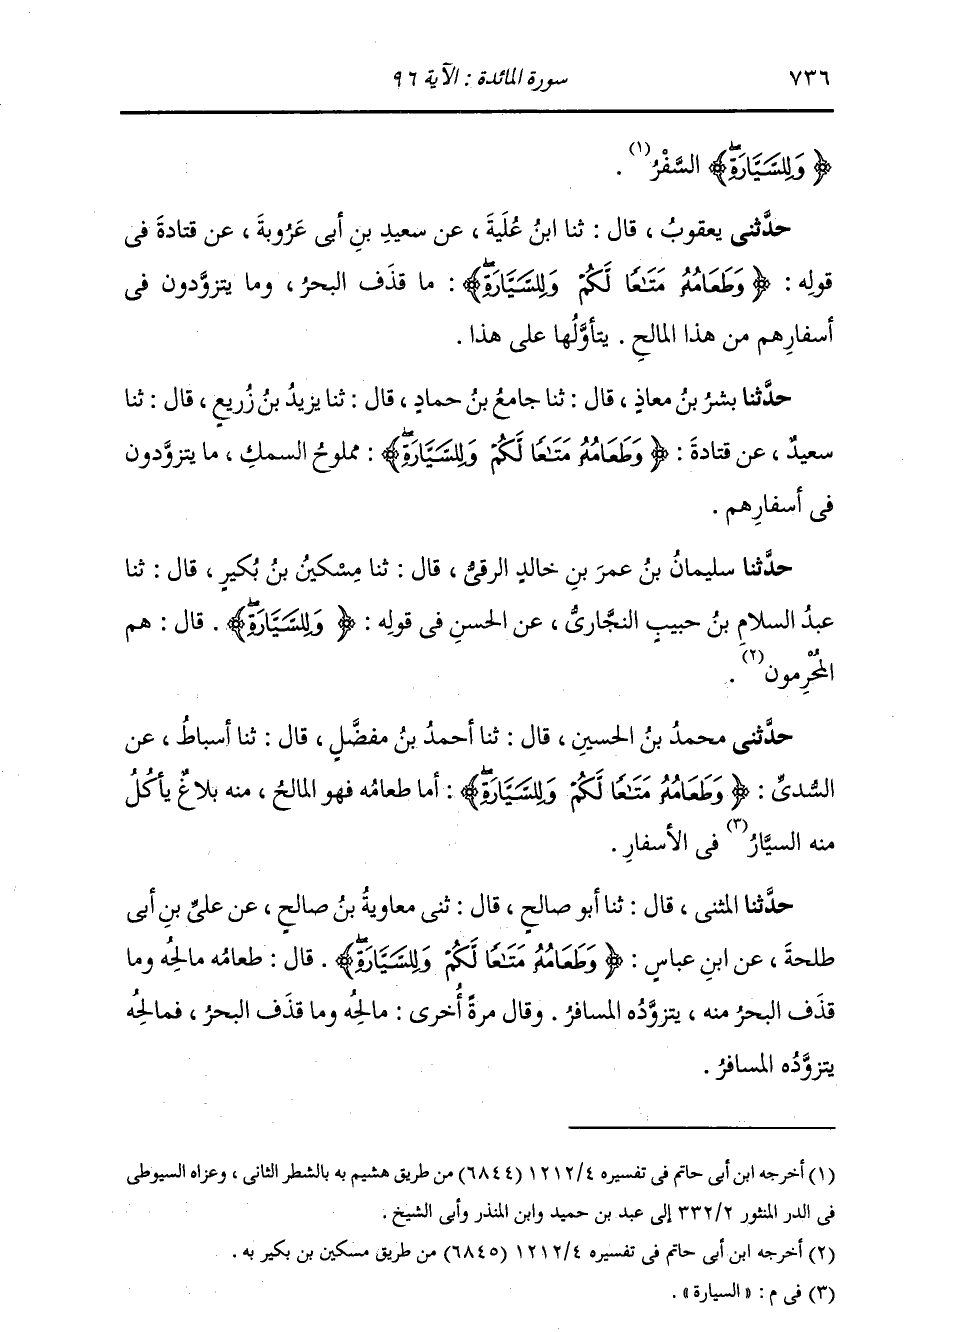 ٧٣٦ سورة المائدة : الآية ٩٦
﴿ وَلِلسَّيَّارَةِ ﴾ السَّفْرُ(١) .
حدَّثنى يعقوبُ ، قال : ثنا ابنُ عُلَيةَ ، عن سعيدِ بنِ أبى عَرُوبةَ ، عن قتادةَ فى
قولِه : ﴿ وَطَعَامُهُ مَتَٰعًا لَّكُمْ وَلِلسَّيَّارَةِ ﴾ : ما قذَف البحرُ ، وما يتزوَّدون فى
أسفارِهم من هذا المالحِ . يتأوَّلُها على هذا .
حدَّثنا بشرُ بنُ معاذٍ ، قال : ثنا جامعُ بنُ حمادٍ ، قال : ثنا يزيدُ بنُ زُريعٍ ، قال : ثنا
سعيدٌ ، عن قتادةَ : ﴿ وَطَعَامُهُ مَتَٰعًا لَّكُمْ وَلِلسَّيَّارَةِ ﴾ : مملوحُ السمكِ ، ما يتزوَّدون
فى أسفارِهم .
حدَّثنا سليمانُ بنُ عمرَ بنِ خالدٍ الرقىُّ ، قال : ثنا مِسْكينُ بنُ بُكيرٍ ، قال : ثنا
عبدُ السلامِ بنُ حبيبٍ النجَّارىُّ ، عن الحسنِ فى قولِه : ﴿ وَلِلسَّيَّارَةِ ﴾ . قال : هم
المُحْرِمون(٢) .
حدَّثنى محمدُ بنُ الحسينِ ، قال : ثنا أحمدُ بنُ مفضَّلٍ ، قال : ثنا أسباطُ ، عن
السُّدىِّ : ﴿ وَطَعَامُهُ مَتَٰعًا لَّكُمْ وَلِلسَّيَّارَةِ ﴾ : أما طعامُه فهو المالحُ ، منه بلاغٌ يأكُلُ
منه السيَّارُ(٣) فى الأسفارِ .
حدَّثنا المثنى ، قال : ثنا أبو صالحٍ ، قال : ثنى معاويةُ بنُ صالحٍ ، عن علىِّ بنِ أبى
طلحةَ ، عن ابنِ عباسٍ : ﴿ وَطَعَامُهُ مَتَٰعًا لَّكُمْ وَلِلسَّيَّارَةِ ﴾ . قال : طعامُه مالحُه وما
قذَف البحرُ منه ، يتزوَّدُه المسافرُ . وقال مرةً أُخرى : مالحُه وما قذَف البحرُ ، فمالحُه
يتزوَّدُه المسافرُ .
(١) أخرجه ابن أبى حاتم فى تفسيره ١٢١٢/٤ (٦٨٤٤) من طريق هشيم به بالشطر الثانى ، وعزاه السيوطى
فى الدر المنثور ٣٣٢/٢ إلى عبد بن حميد وابن المنذر وأبى الشيخ .
(٢) أخرجه ابن أبى حاتم فى تفسيره ١٢١٢/٤ (٦٨٤٥) من طريق مسكين بن بكير به .
(٣) فى م : « السيارة » .